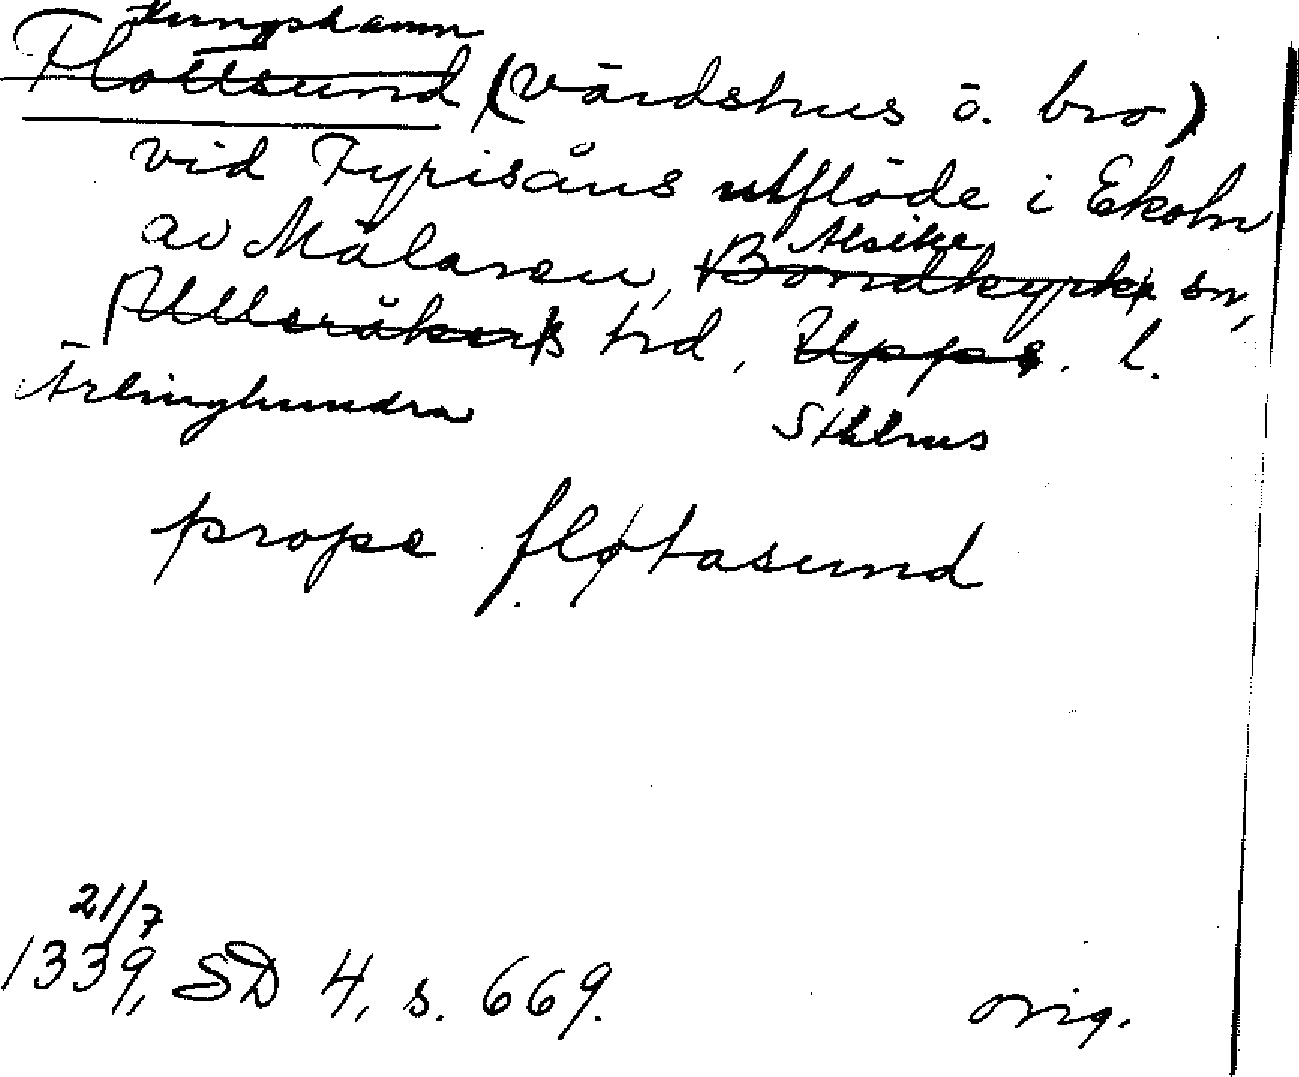 Kungshamn
Flottsund (värdshus o. bro)
vid Fyrisåns utflöde i Ekoln
av Mälaren, Bondkyrko sn,
Alsike
Ulleråkers hd, Upps. l.
Ärlinghundra Sthlms
prope fløtasund
21/7
1339, SD 4, s. 669. orig.